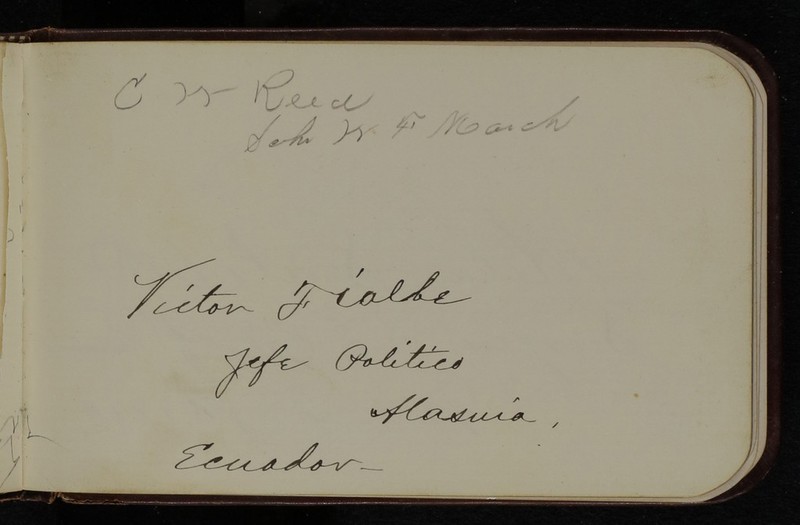 C W Reed
Schr W. F March
Victor Fialbe
Jefe Politico
Alasuia,
Ecuador